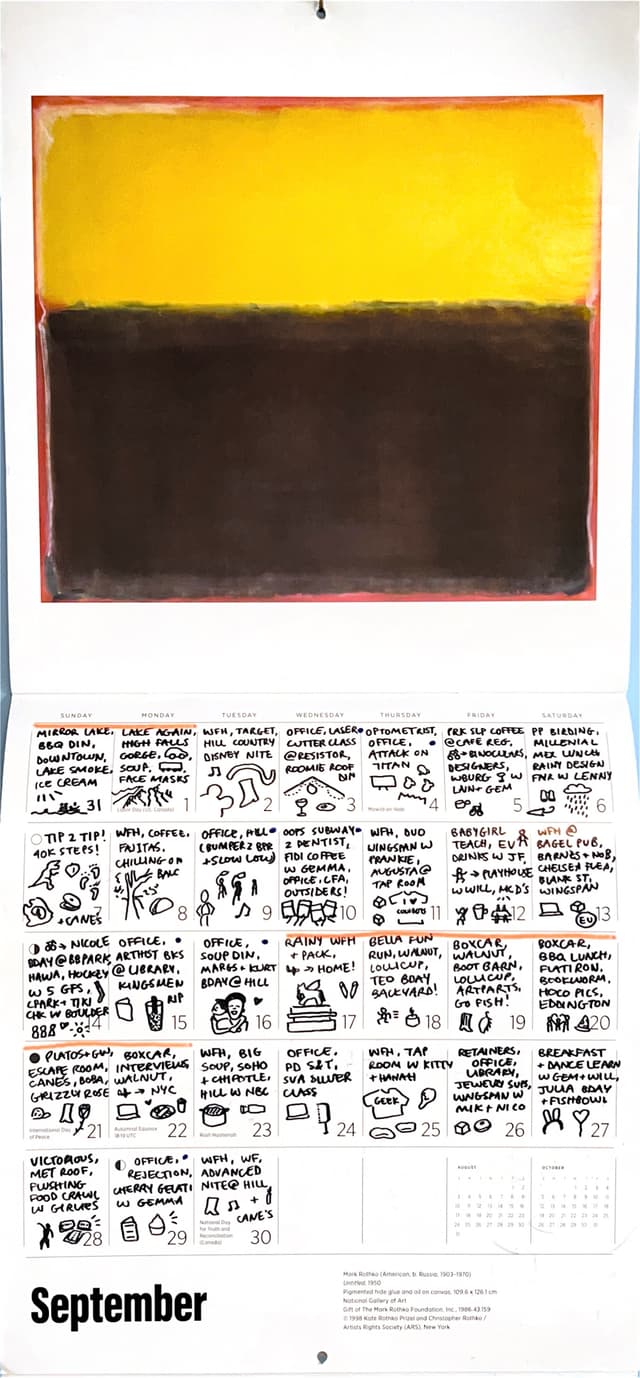 SUNDAY MONDAY TUESDAY WEDNESDAY THURSDAY FRIDAY SATURDAY
MIRROR LAKE,
BBQ DIN,
DOWNTOWN,
LAKE SMOKE,
ICE CREAM
31
LAKE AGAIN,
HIGH FALLS
GORGE,
SOUP,
FACE MASKS
Labor Day (US, Canada)
1
WFH, TARGET,
HILL COUNTRY
DISNEY NITE
2
OFFICE, LASER
CUTTER CLASS
@RESISTOR,
ROOMIE ROOF
DIN
3
OPTOMETRIST,
OFFICE,
ATTACK ON
TITAN
4
PRK SLP COFFEE
@CAFE REG,
BINOCULARS,
DESIGNERS,
WBURG W
LAN+ GEM
5
PP BIRDING,
MILLENIAL
MEX LUNCH
RAINY DESIGN
FNR W LENNY
6
TIP 2 TIP!
40K STEPS!
+CANES
7
WFH, COFFEE,
FAJITAS,
CHILLING ON
BALC
8
OFFICE, HILL
(BUMPER 2 BPR
+SLOW LOW)
9
OOPS SUBWAY
2 DENTIST,
FIDI COFFEE
W GEMMA,
OFFICE, CFA,
OUTSIDERS!
10
WFH, DUO
WINGSPAN W
FRANKIE,
AUGUSTA@
TAP ROOM
COWBOYS
11
BABYGIRL
TEACH, EVA
DRINKS W JF,
PLAYHOUSE
W WILL, MCD'S
12
WFH @
BAGEL PUB,
BARNES+NOB,
CHELSEA FLEA,
BLANK ST,
WINGSPAN
EU
13
NICOLE
BDAY@BBPARK,
HAWA, HOCKEY
W 5 GFS,
CPARK+ TIKI
CHK W BOULDER
14
OFFICE,
ARTHST BKS
@ LIBRARY,
KINGSMEN
NP
15
OFFICE,
SOUP DIN,
MARGS+ KURT
BDAY@ HILL
16
RAINY WFH
+ PACK,
HOME!
17
BELLA FUN
RUN, WALNUT,
LOLLICUP,
TED BDAY
BACKYARD!
18
BOXCAR,
WALNUT,
BOOT BARN,
LOLLICUP,
ARTPARTS,
GO FISH!
19
BOXCAR,
BBQ LUNCH,
FLATIRON,
BOOKWORM,
HOCO PICS,
EDDINGTON
20
PLATOS+GW,
ESCAPE ROOM,
CANES, BOBA,
GRIZZLY ROSE
International Day
of Peace
21
BOXCAR,
INTERVIEWS
WALNUT,
NYC
Autumnal Equinox
18:19 UTC
22
WFH, BIG
SOUP, SOHO
+ CHIPOTLE,
HILL W NBC
Rosh Hashanah
23
OFFICE,
PD S&T,
SVA SILVER
CLASS
24
WFH, TAP
ROOM W KITTY
+HANAH
GEEK
25
RETAINERS,
OFFICE,
JEWELRY SUPS,
WNGSPAN W
MIK+ NICO
26
BREAKFAST
+ DANCE LEARN
W GEM+WILL,
JULIA BDAY
+FISHBOWL
27
VICTORIOUS,
MET ROOF,
FLUSHING
FOOD CRAWL
W GIRLIES
28
OFFICE,
REJECTION,
CHERRY GELATI
W GEMMA
29
WFH, WF,
ADVANCED
NITE@ HILL,
+
CANE'S
National Day
for Truth and
Reconciliation
(Canada)
30
AUGUST
OCTOBER
September
Mark Rothko (American, b. Russia, 1903–1970)
Untitled, 1950
Pigmented hide glue and oil on canvas, 109.6 x 126.1 cm
National Gallery of Art
Gift of The Mark Rothko Foundation, Inc., 1986.43.159
© 1998 Kate Rothko Prizel and Christopher Rothko /
Artists Rights Society (ARS), New York